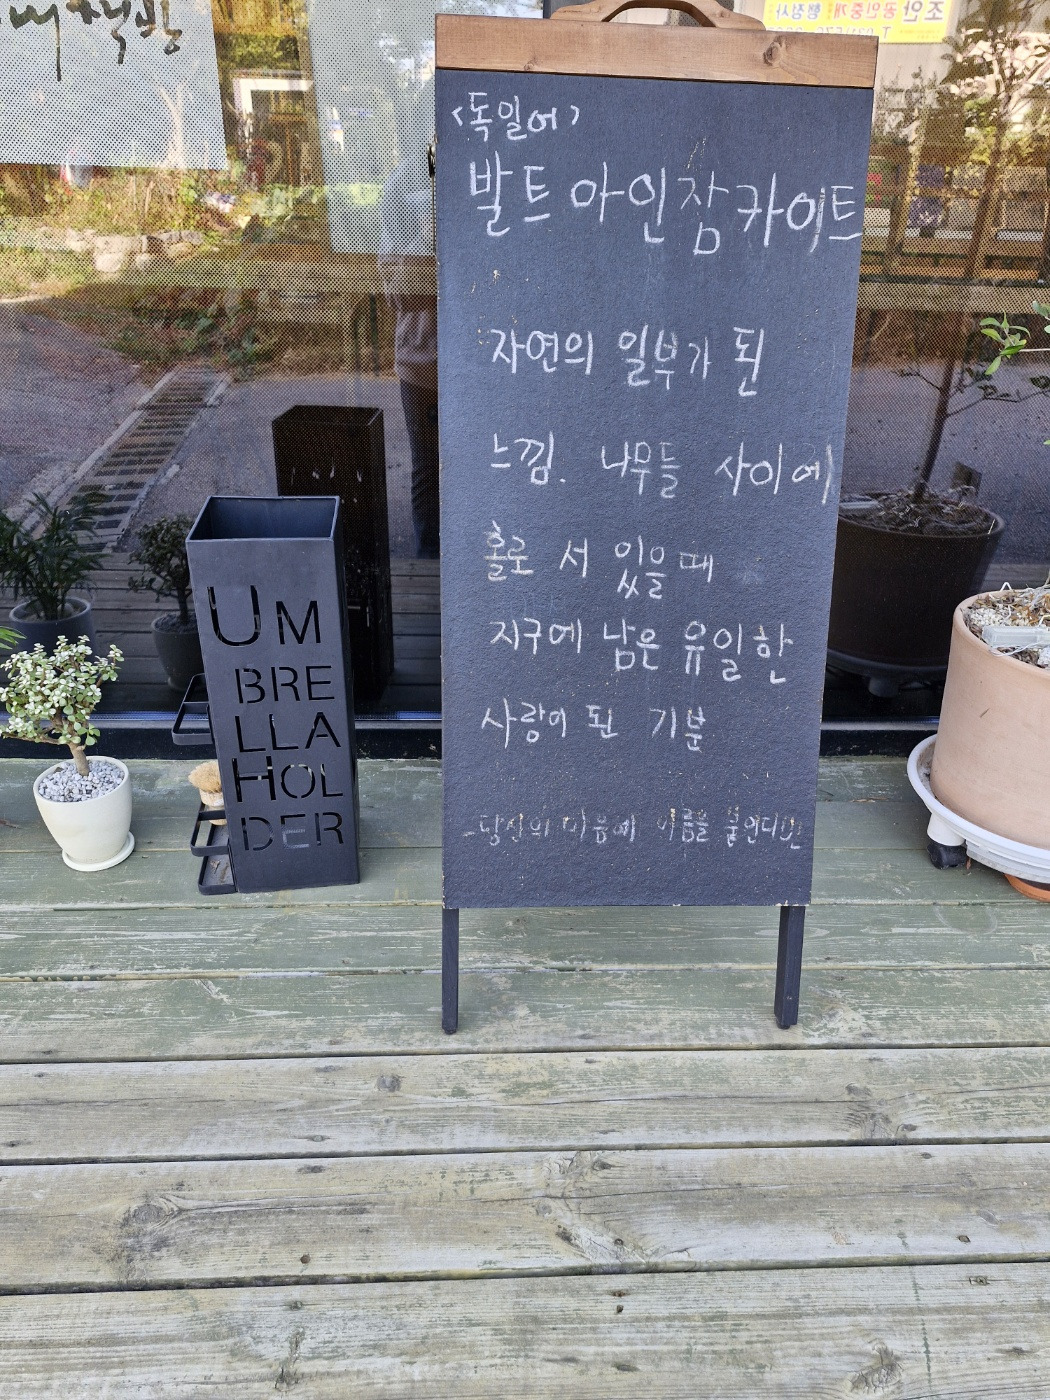 <독일어>
발트 아인잠 카이트
자연의 일부가 된
느낌. 나무들 사이에
홀로 서 있을 때
지구에 남은 유일한
사랑이 된 기분
-당신의 마음에 이름을 붙인다면
UM
BRE
LLA
HOL
DER
조안 공인중개 행정사